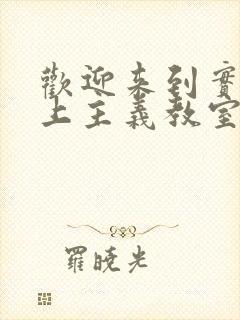 歡迎来到實
上主義教室
羅曉光